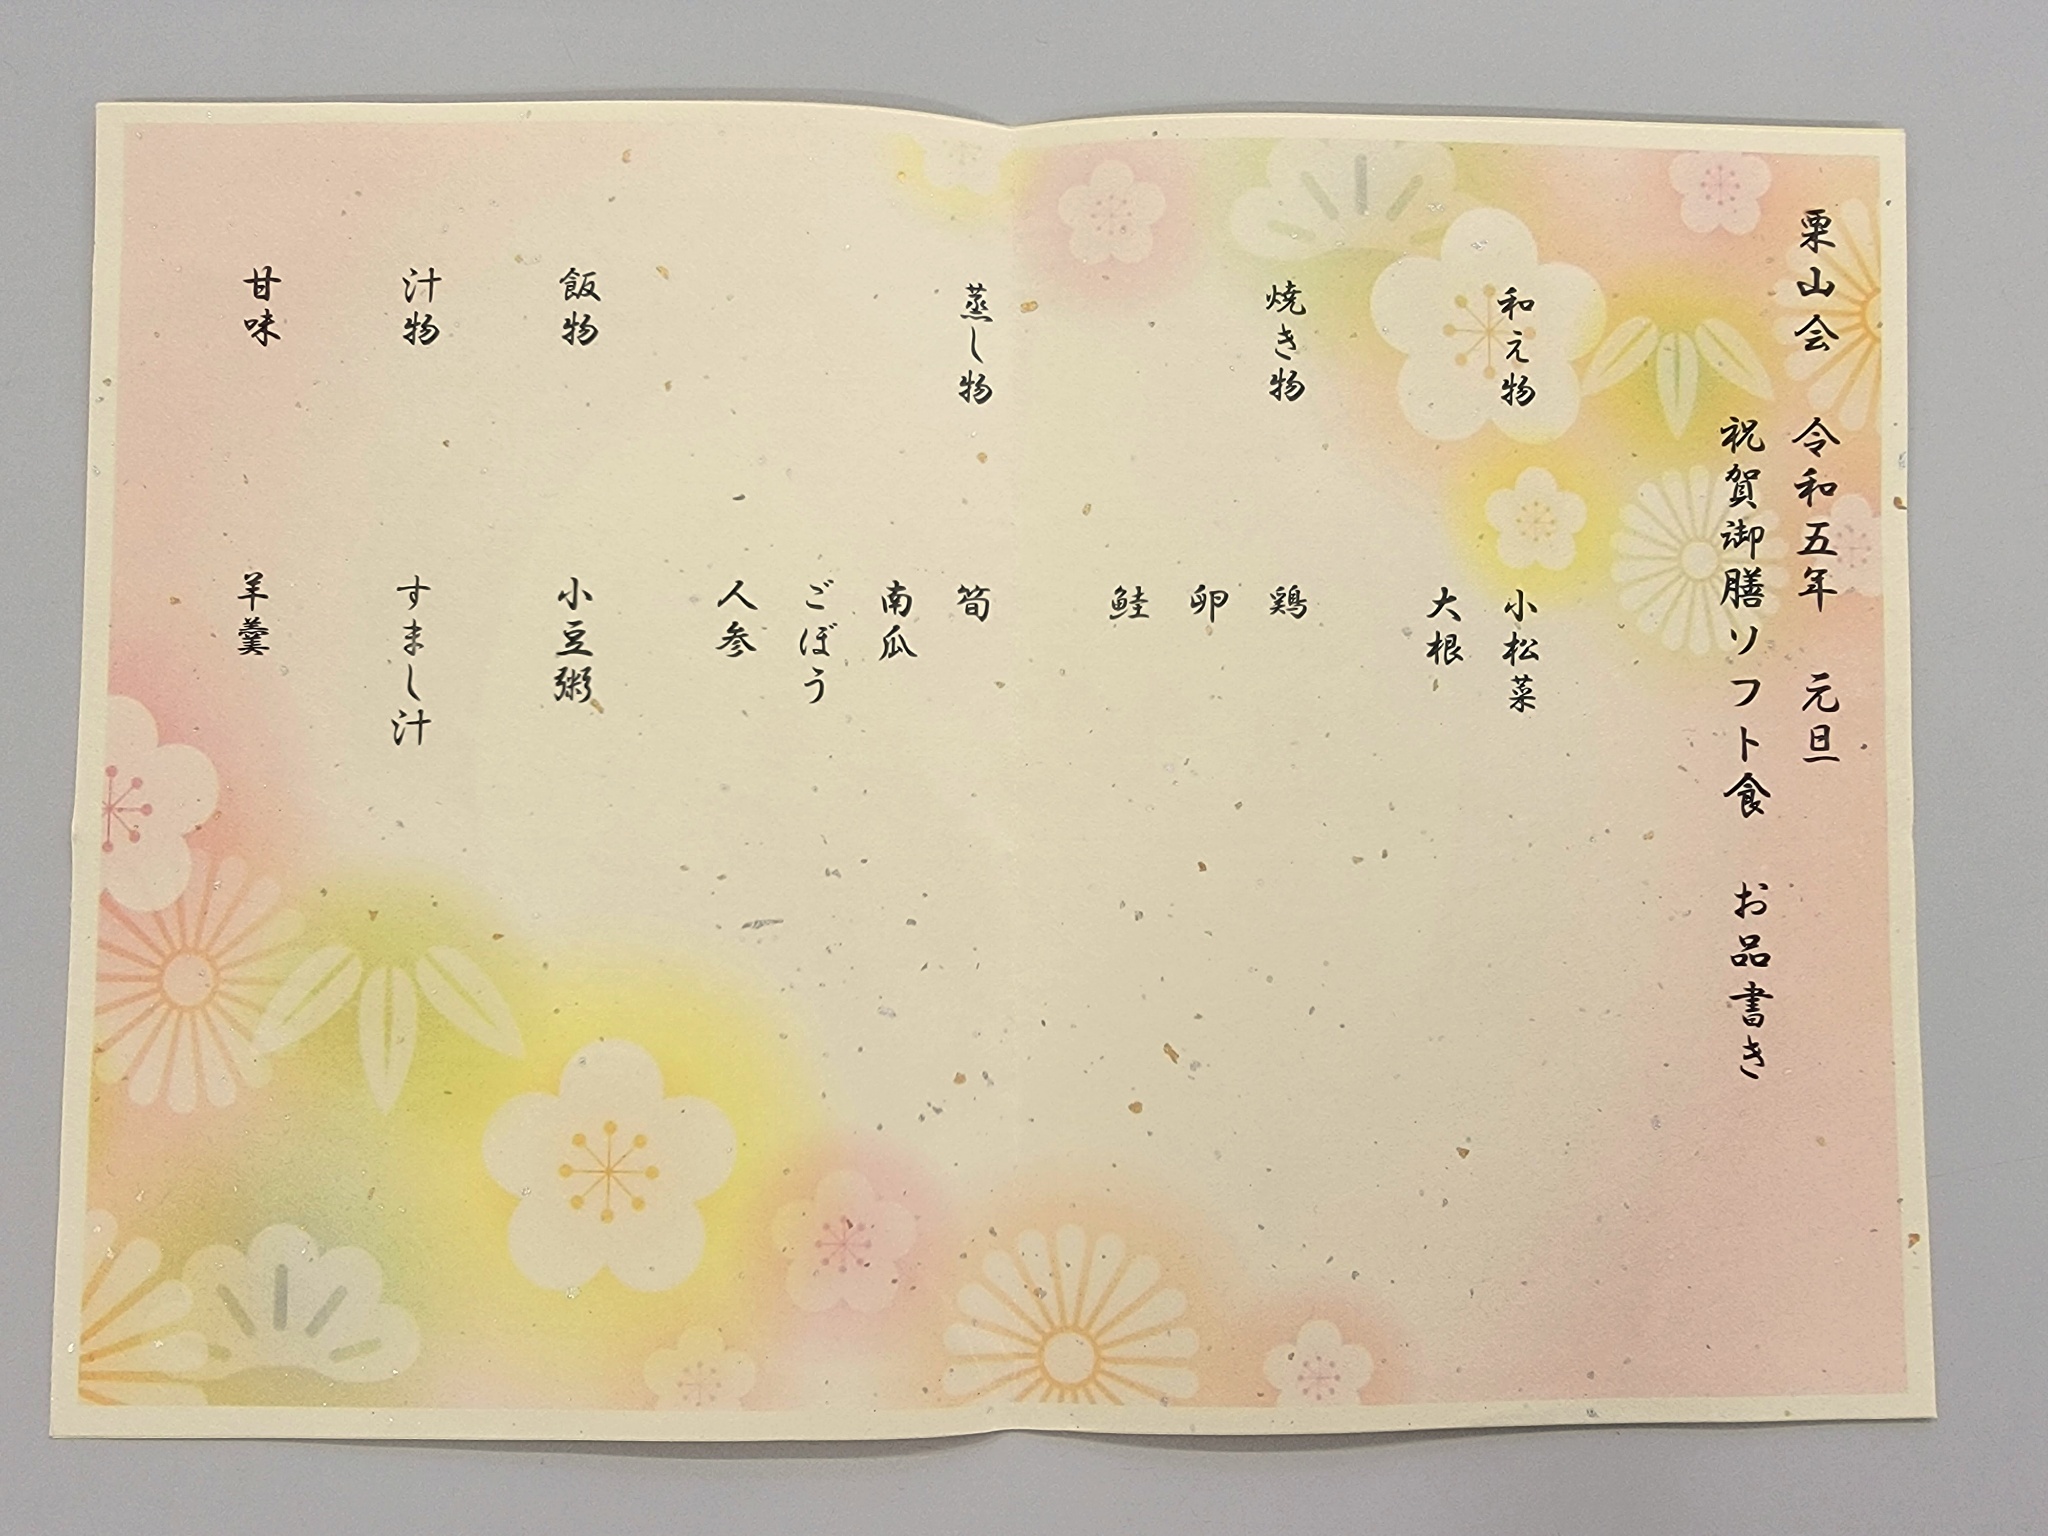 栗山会 令和五年 元旦
祝賀御膳ソフト食 お品書き
和え物 小松菜
大根
焼き物 鶏
卵
鮭
蒸し物 筍
南瓜
ごぼう
人参
飯物 小豆粥
汁物 すまし汁
甘味 羊羹